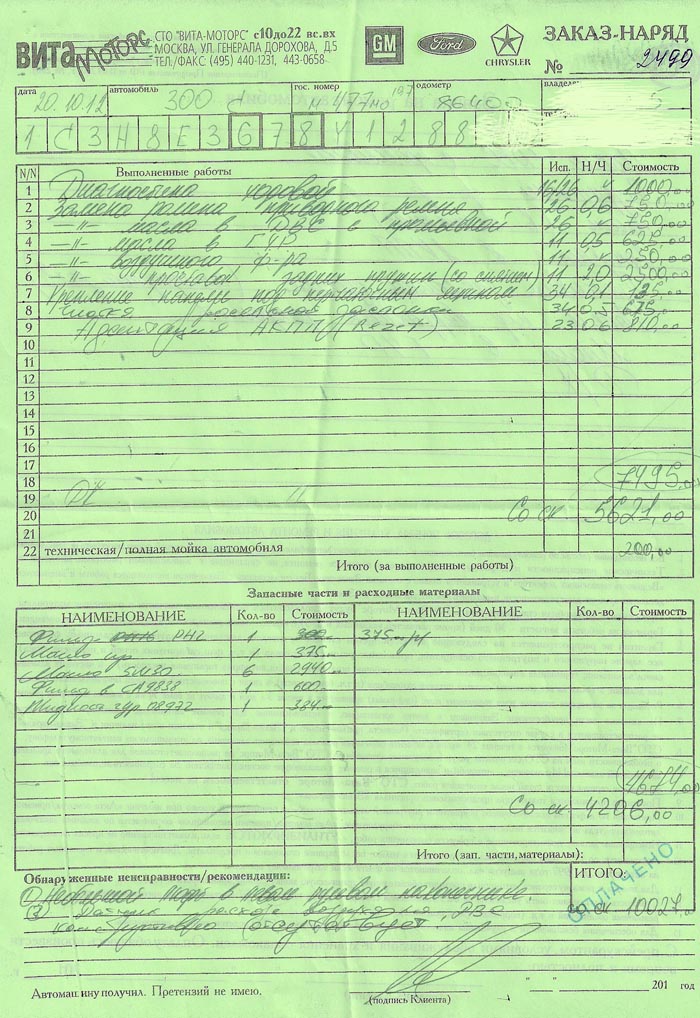 ВИТА МОТОРС
СТО "ВИТА-МОТОРС" с10до22 вс.вх
МОСКВА, УЛ. ГЕНЕРАЛА ДОРОХОВА, Д.5
ТЕЛ./ФАКС: (495) 440-1231, 443-0658
GM Ford CHRYSLER
ЗАКАЗ-НАРЯД
№ 2499
дата автомобиль гос. номер одометр владелец
20.10.12 300 C 477 86400
1 C 3 H 8 E 3 G 7 8 Y 1 2 8 8
N/N Выполненные работы Исп. Н/Ч Стоимость
1 Диагностика ходовой 16/26 1000,00
2 Замена ролика приводного ремня 26 0,6 750,00
3 -"- масла в ДВС с промывкой 26 750,00
4 -"- масла в ГУР 11 0,5 625,00
5 -"- воздушного ф-ра 11 250,00
6 -"- проставок задних пружин (со снятием) 11 2,0 2500,00
7 Крепление панели под перчаточным ящиком 34 0,1 135,00
8 Чистка дроссельной заслонки 34 0,5 675,00
9 Адаптация АКПП (Rezet) 23 0,6 810,00
10
11
12
13
14
15
16
17
18 7495,00
19
20 Со ск 5621,00
21
22 техническая/полная мойка автомобиля 200,00
Итого (за выполненные работы)
Запасные части и расходные материалы
НАИМЕНОВАНИЕ Кол-во Стоимость НАИМЕНОВАНИЕ Кол-во Стоимость
Фильтр PH2 1 375
Масло пр 1 375
Масло 5W30 6 2940
Фильтр в CA9838 1 600
Жидкость гур 08972 1 384
4674,00
Со ск 4206,00
Итого (зап. части,материалы):
Обнаруженные неисправности/рекомендации:
ИТОГО:
1) Небольшой люфт в левом рулевом наконечнике.
2) Датчик расхода воздуха ДВС
ОПЛАЧЕНО
со ск 10027,0
конструктивно отсутствует.
Автомашину получил. Претензий не имею.
(подпись Клиента)
"__" 201 год